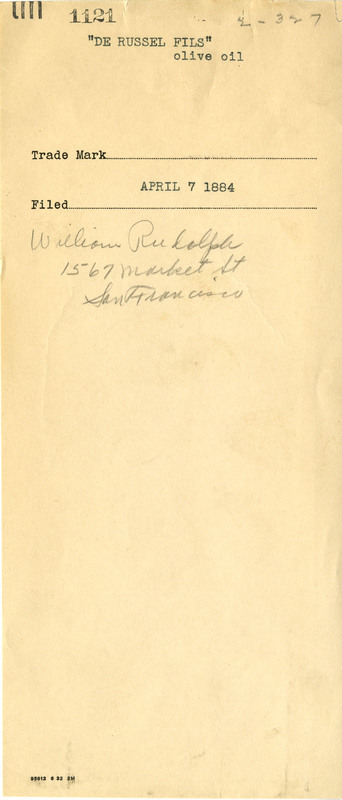 1121
2-327
"DE RUSSEL FILS"
olive oil
Trade Mark
APRIL 7 1884
Filed
William Rudolph
1567 Market St
San Francisco
95613 6 32 2M